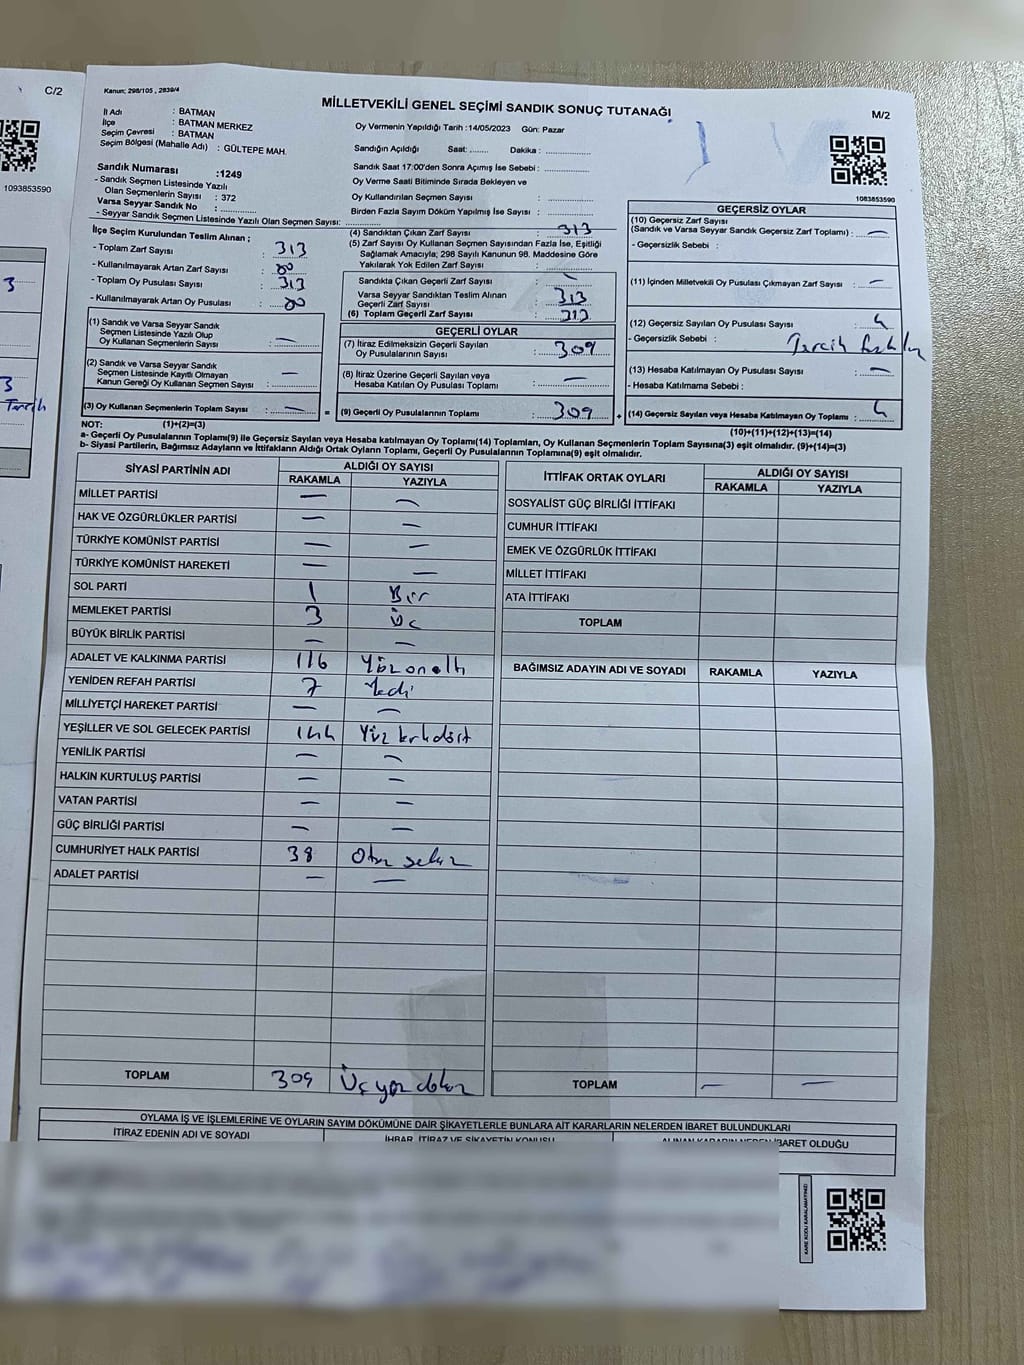 C/2
1093853590
3
3
Tercih
Kanun; 298/105 , 2839/4
MİLLETVEKİLİ GENEL SEÇİMİ SANDIK SONUÇ TUTANAĞI
M/2
1083853590
İl Adı : BATMAN
İlçe : BATMAN MERKEZ
Seçim Çevresi : BATMAN
Seçim Bölgesi (Mahalle Adı) : GÜLTEPE MAH.
Sandık Numarası :1249
- Sandık Seçmen Listesinde Yazılı
Olan Seçmenlerin Sayısı : 372
Varsa Seyyar Sandık No : ............
- Seyyar Sandık Seçmen Listesinde Yazılı Olan Seçmen Sayısı: ............
Oy Vermenin Yapıldığı Tarih :14/05/2023 Gün: Pazar
Sandığın Açıldığı Saat: ........ Dakika : ............
Sandık Saat 17:00'den Sonra Açımış İse Sebebi : ............
Oy Verme Saati Bitiminde Sırada Bekleyen ve
Oy Kullandırılan Seçmen Sayısı : ............
Birden Fazla Sayım Döküm Yapılmış İse Sayısı : ............
İlçe Seçim Kurulundan Teslim Alınan ;
- Toplam Zarf Sayısı : 313
- Kullanılmayarak Artan Zarf Sayısı : 00
- Toplam Oy Pusulası Sayısı : 313
- Kullanılmayarak Artan Oy Pusulası : 00
(1) Sandık ve Varsa Seyyar Sandık
Seçmen Listesinde Yazılı Olup
Oy Kullanan Seçmenlerin Sayısı : —
(2) Sandık ve Varsa Seyyar Sandık
Seçmen Listesinde Kayıtlı Olmayan
Kanun Gereği Oy Kullanan Seçmen Sayısı : —
(3) Oy Kullanan Seçmenlerin Toplam Sayısı : — =
(1)+(2)=(3)
(4) Sandıktan Çıkan Zarf Sayısı : 313
(5) Zarf Sayısı Oy Kullanan Seçmen Sayısından Fazla İse, Eşitliği
Sağlamak Amacıyla; 298 Sayılı Kanunun 98. Maddesine Göre
Yakılarak Yok Edilen Zarf Sayısı : ............
Sandıkta Çıkan Geçerli Zarf Sayısı : —
Varsa Seyyar Sandıktan Teslim Alınan
Geçerli Zarf Sayısı : 313
(6) Toplam Geçerli Zarf Sayısı : 313
GEÇERLİ OYLAR
(7) İtiraz Edilmeksizin Geçerli Sayılan
Oy Pusulalarının Sayısı : 309
(8) İtiraz Üzerine Geçerli Sayılan veya
Hesaba Katılan Oy Pusulası Toplamı : —
(9) Geçerli Oy Pusulalarının Toplamı : 309 +
GEÇERSİZ OYLAR
(10) Geçersiz Zarf Sayısı
(Sandık ve Varsa Seyyar Sandık Geçersiz Zarf Toplamı) : —
- Geçersizlik Sebebi :
(11) İçinden Milletvekili Oy Pusulası Çıkmayan Zarf Sayısı : —
(12) Geçersiz Sayılan Oy Pusulası Sayısı : 4
- Geçersizlik Sebebi : Tercih fazla
(13) Hesaba Katılmayan Oy Pusulası Sayısı : —
- Hesaba Katılmama Sebebi :
(14) Geçersiz Sayılan veya Hesaba Katılmayan Oy Toplamı : 4
(10)+(11)+(12)+(13)=(14)
NOT:
a- Geçerli Oy Pusulalarının Toplamı(9) ile Geçersiz Sayılan veya Hesaba katılmayan Oy Toplamı(14) Toplamları, Oy Kullanan Seçmenlerin Toplam Sayısına(3) eşit olmalıdır. (9)+(14)=(3)
b- Siyasi Partilerin, Bağımsız Adayların ve İttifakların Aldığı Ortak Oyların Toplamı, Geçerli Oy Pusulalarının Toplamına(9) eşit olmalıdır.
SİYASİ PARTİNİN ADI ALDIĞI OY SAYISI
RAKAMLA YAZIYLA
MİLLET PARTİSİ — —
HAK VE ÖZGÜRLÜKLER PARTİSİ — —
TÜRKİYE KOMÜNİST PARTİSİ — —
TÜRKİYE KOMÜNİST HAREKETİ — —
SOL PARTİ 1 Bir
MEMLEKET PARTİSİ 3 Üç
BÜYÜK BİRLİK PARTİSİ — —
ADALET VE KALKINMA PARTİSİ 116 Yüzonaltı
YENİDEN REFAH PARTİSİ 7 Yedi
MİLLİYETÇİ HAREKET PARTİSİ — —
YEŞİLLER VE SOL GELECEK PARTİSİ 144 Yüz kırkdört
YENİLİK PARTİSİ — —
HALKIN KURTULUŞ PARTİSİ — —
VATAN PARTİSİ — —
GÜÇ BİRLİĞİ PARTİSİ — —
CUMHURİYET HALK PARTİSİ 38 Otuz sekiz
ADALET PARTİSİ — —
TOPLAM 309 Üçyüz dokuz
İTTİFAK ORTAK OYLARI ALDIĞI OY SAYISI
RAKAMLA YAZIYLA
SOSYALİST GÜÇ BİRLİĞİ İTTİFAKI
CUMHUR İTTİFAKI
EMEK VE ÖZGÜRLÜK İTTİFAKI
MİLLET İTTİFAKI
ATA İTTİFAKI
TOPLAM
BAĞIMSIZ ADAYIN ADI VE SOYADI RAKAMLA YAZIYLA
TOPLAM — —
OYLAMA İŞ VE İŞLEMLERİNE VE OYLARIN SAYIM DÖKÜMÜNE DAİR ŞİKAYETLERLE BUNLARA AİT KARARLARIN NELERDEN İBARET BULUNDUKLARI
İTİRAZ EDENİN ADI VE SOYADI İHBAR, İTİRAZ VE ŞİKAYETİN KONUSU ALINAN KARARIN NEDEN İBARET OLDUĞU
KARE KODU KARALAMAYINIZ!